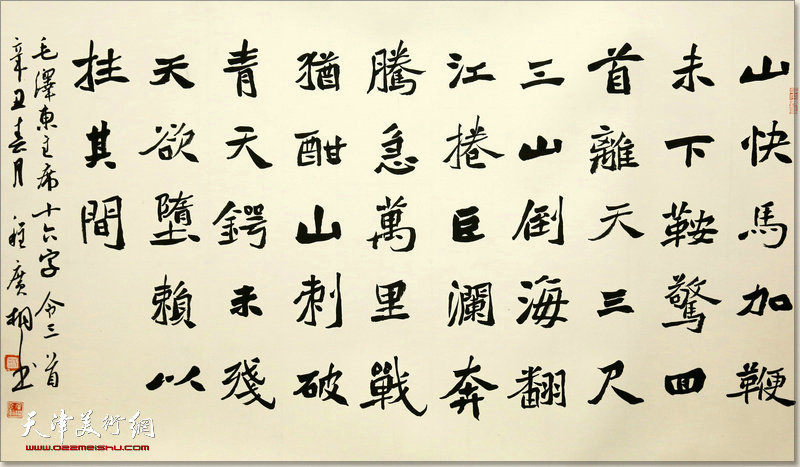 山快馬加鞭
未下鞍驚回
首離天三尺
三山倒海翻
江捲巨瀾奔
騰急萬里戰
猶酣山刺破
青天鍔未殘
天欲墮賴以
拄其間
毛澤東主席十六字令三首
辛丑春月 廣书
天津美術網
www.022meishu.com